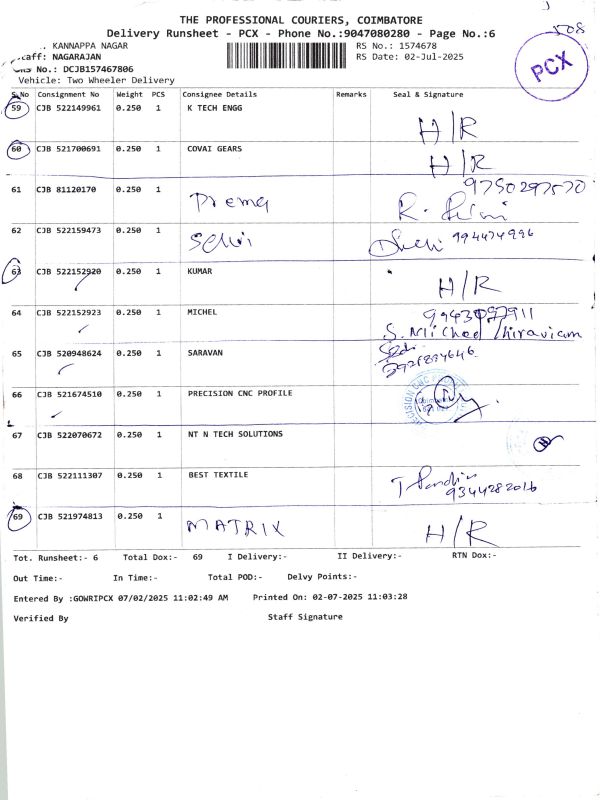 508
THE PROFESSIONAL COURIERS, COIMBATORE
Delivery Runsheet - PCX - Phone No.:9047080280 - Page No.:6
KANNAPPA NAGAR
RS No.: 1574678
PCX
NAGARAJAN
RS Date: 02-Jul-2025
No.: DCJB157467806
Vehicle: Two Wheeler Delivery
S.No Consignment No Weight PCS Consignee Details Remarks Seal & Signature
59 CJB 522149961 0.250 1 K TECH ENGG H/R
60 CJB 521700691 0.250 1 COVAI GEARS H/R
61 CJB 81120170 0.250 1 Prema 9750297570
62 CJB 522159473 0.250 1 Selvi
63 CJB 522152920 0.250 1 KUMAR H/R
64 CJB 522152923 0.250 1 MICHEL
S. Michael Thiraviam
65 CJB 520948624 0.250 1 SARAVAN
66 CJB 521674510 0.250 1 PRECISION CNC PROFILE
67 CJB 522070672 0.250 1 NT N TECH SOLUTIONS
68 CJB 522111307 0.250 1 BEST TEXTILE
9344282016
69 CJB 521974813 0.250 1 MATRIX H/R
Tot. Runsheet:- 6 Total Dox:- 69 I Delivery:- II Delivery:- RTN Dox:-
Out Time:- In Time:- Total POD:- Delvy Points:-
Entered By :GOWRIPCX 07/02/2025 11:02:49 AM Printed On: 02-07-2025 11:03:28
Verified By Staff Signature